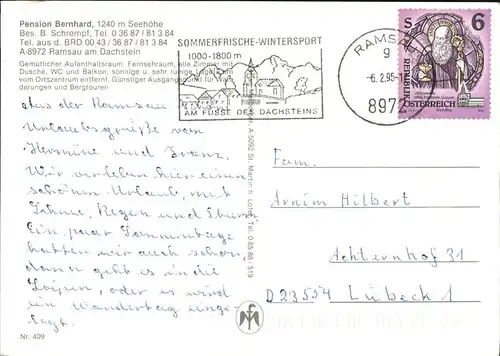 Pension Bernhard, 1240 m Seehöhe
Bes. B. Schrempf, Tel. 0 36 87 / 81 3 84
Tel. aus d. BRD 00 43 / 36 87 / 81 3 84
A-8972 Ramsau am Dachstein
Gemütlicher Aufenthaltsraum, Fernsehraum, alle Zimmer mit
Dusche, WC und Balkon; sonnige u. sehr ruhige Lage
vom Ortszentrum entfernt. Günstiger Ausgangspunkt für Wan-
derungen und Bergtouren
SOMMERFRISCHE-WINTERSPORT
1000-1800 m
AM FUSSE DES DACHSTEINS
RAMSAU
g
-6. 2.95-1
8972
S 6
REPUBLIK
ÖSTERREICH
Aus der Ramsau
Urlaubsgrüße von
Hermine und Franz.
Wir verleben hier einen
schönen Urlaub, mit
Schnee, Regen und Sturm.
Ein paar Sonnentage
hatten wir auch schon,
dann geht es in die
Loipen, oder es wird
ein Wandertag einge-
legt.
Fam.
Arnim Hilbert
Achternhof 31
D 23554 Lübeck 1
Nr. 409